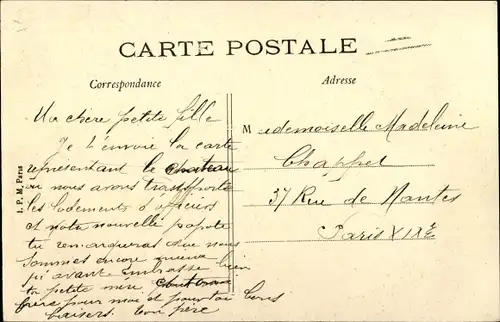 CARTE POSTALE
Correspondance
Adresse
I. P. M. Paris
Ma chère petite fille
Je t'envoie la carte
représentant le chateau
où nous avons transporté
les logements d'officiers
et notre nouvelle popote
tu remarqueras que nous
sommes encore mieux
qu'avant embrasse bien
ta petite mère
frère pour moi et pour toi bons
baisers ton père
Mademoiselle Madeleine
Chappet
37 Rue de Nantes
Paris XIXE